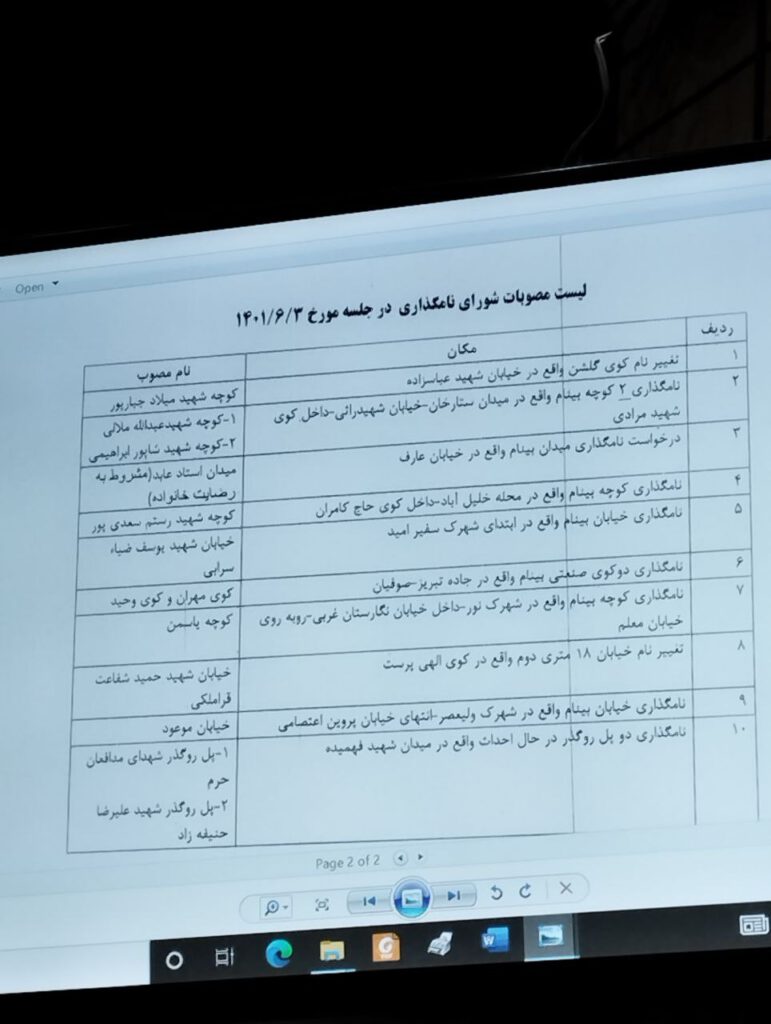 Open
لیست مصوبات شورای نامگذاری در جلسه مورخ ۱۴۰۱/۶/۳
ردیف مکان نام مصوب
۱ تغییر نام کوی گلشن واقع در خیابان شهید عباسزاده کوچه شهید میلاد جبارپور
۲ نامگذاری ۲ کوچه بینام واقع در میدان ستارخان-خیابان شهیدرائی-داخل کوی ۱-کوچه شهیدعبدالله ملالی
شهید مرادی ۲-کوچه شهید شاپور ابراهیمی
۳ درخواست نامگذاری میدان بینام واقع در خیابان عارف میدان استاد عابد(مشروط به
رضایت خانواده)
۴ نامگذاری کوچه بینام واقع در محله خلیل آباد-داخل کوی حاج کامران کوچه شهید رستم سعدی پور
۵ نامگذاری خیابان بینام واقع در ابتدای شهرک سفیر امید خیابان شهید یوسف ضیاء
سرابی
۶ نامگذاری دوکوی صنعتی بینام واقع در جاده تبریز-صوفیان کوی مهران و کوی وحید
۷ نامگذاری کوچه بینام واقع در شهرک نور-داخل خیابان نگارستان غربی-روبه روی کوچه یاسمن
خیابان معلم
۸ تغییر نام خیابان ۱۸ متری دوم واقع در کوی الهی پرست خیابان شهید حمید شفاعت
قراملکی
۹ نامگذاری خیابان بینام واقع در شهرک ولیعصر-انتهای خیابان پروین اعتصامی خیابان موعود
۱۰ نامگذاری دو پل روگذر در حال احداث واقع در میدان شهید فهمیده ۱-پل روگذر شهدای مدافعان
حرم
۲-پل روگذر شهید علیرضا
حنیفه زاد
Page 2 of 2